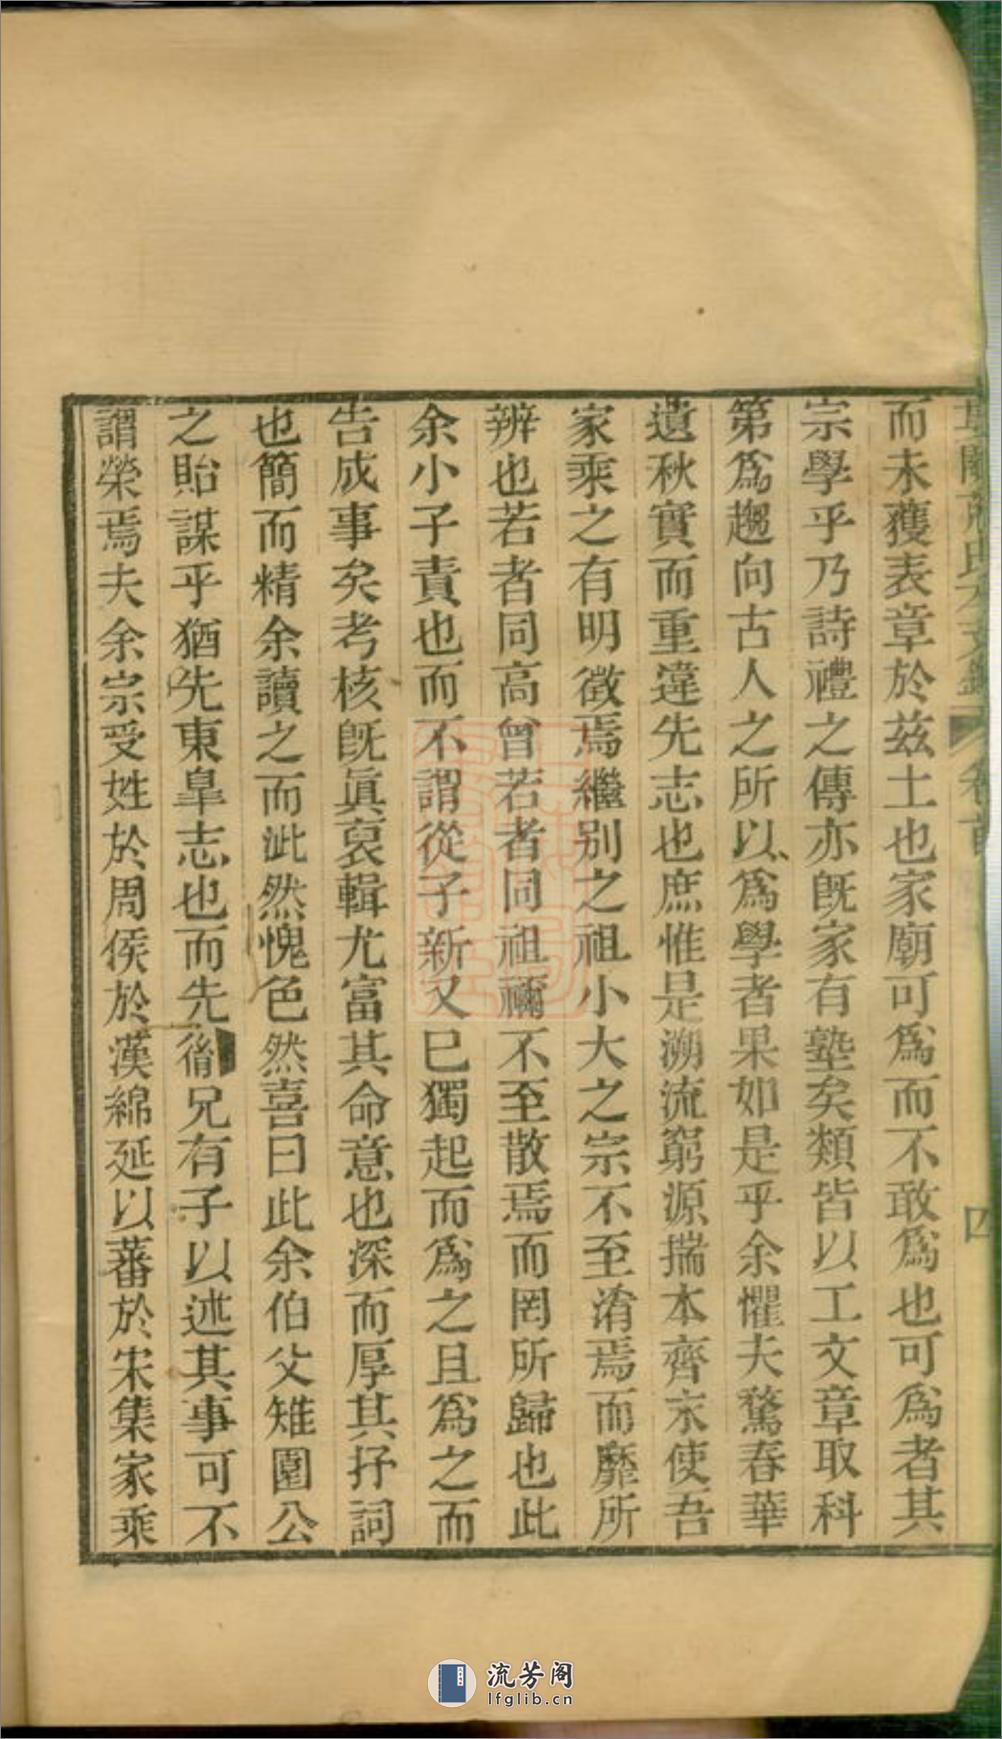 而未獲表章於茲土也家廟可爲而不敢爲也可爲者其
宗學乎乃詩禮之傳亦旣家有塾矣類皆以工文章取科
第爲趨向古人之所以爲學者果如是乎余懼夫騖春華
遺秋實而重違先志也庶惟是溯流窮源揣本齊末使吾
家乘之有明徵焉繼別之祖小大之宗不至淆焉而靡所
辨也若者同高曾若者同祖禰不至散焉而罔所歸也此
余小子責也而不謂從子新又已獨起而爲之且爲之而
告成事矣考核旣眞裒輯尤富其命意也深而厚其抒詞
也簡而精余讀之而泚然愧色然喜曰此余伯父雉園公
之貽謀乎猶先東皐志也而先脩兄有子以述其事可不
謂榮焉夫余宗受姓於周侯於漢綿延以蕃於宋集家乘
卷首
四
流芳阁
lfglib.cn